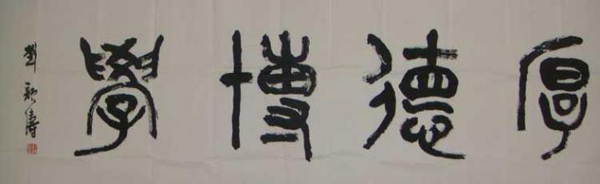 厚德博學
劉新濤